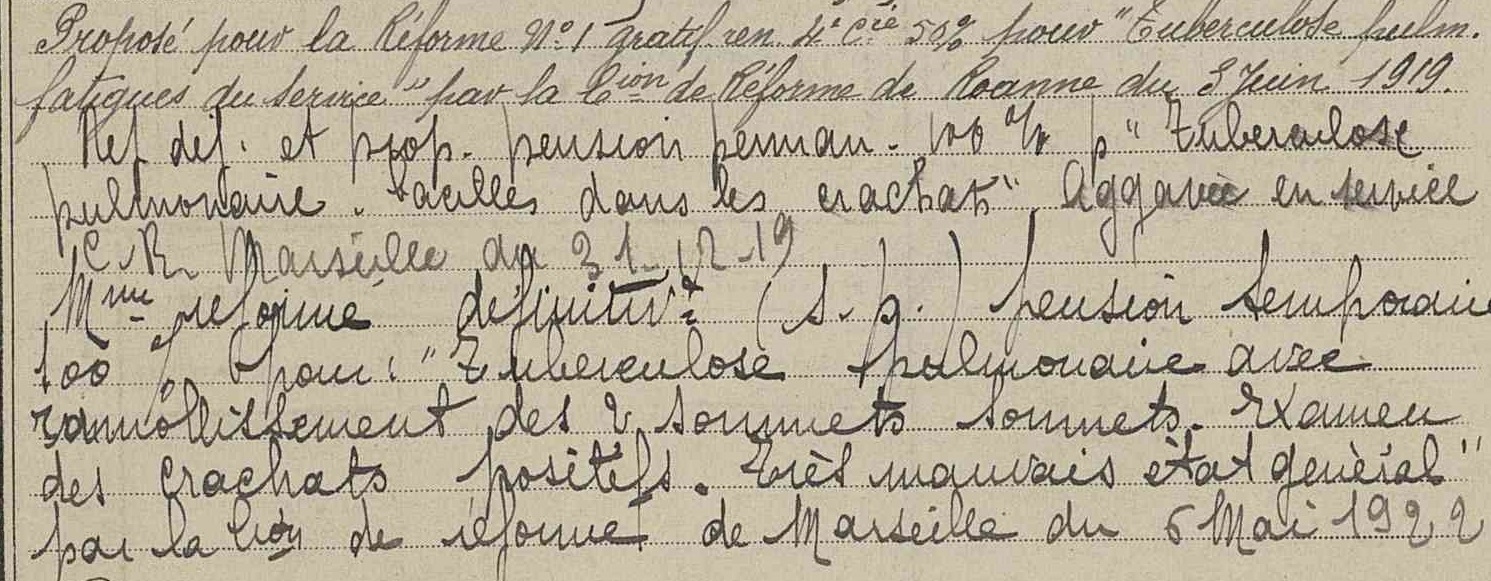 Proposé pour la Réforme N° 1 gratif. ren. 4e Cie 50% pour "Tuberculose pulm.
fatigues du service" par la Cion de Réforme de Roanne du 3 Juin 1919.
Ref. déf. et prop. pension perman. 100 % p "Tuberculose
pulmonaire. bacilles dans les crachats". Aggavée en service
C. R. Marseille du 31-12-19
Mme réforme définitivt (S.p.) pension temporaire
100 % pour : "Tuberculose pulmonaire avec
ramollissement des 2 sommets sommets. Examen
des crachats positifs. Très mauvais état général"
par la Cion de réforme de Marseille du 5 Mai 1922